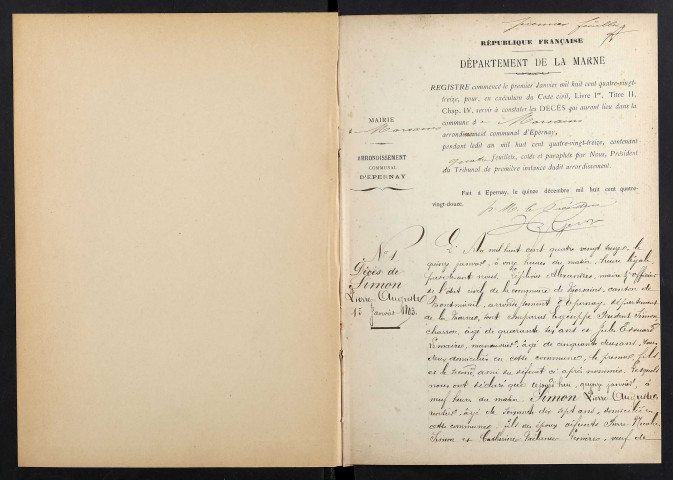 premier feuillet
RÉPUBLIQUE FRANÇAISE
DÉPARTEMENT DE LA MARNE
REGISTRE commencé le premier Janvier mil huit cent quatre-vingt-
treize, pour, en exécution du Code civil, Livre Ier, Titre II,
Chap. IV, servir à constater les DÉCÈS qui auront lieu dans la
commune d
arrondissement communal d'Epernay,
pendant ledit an mil huit cent quatre-vingt-treize, contenant
quatre feuillets, cotés et paraphés par Nous, Président
du Tribunal de première instance dudit arrondissement.
Fait à Epernay, le quinze décembre mil huit cent quatre-
vingt-douze.
MAIRIE
ARRONDISSEMENT
COMMUNAL
D'EPERNAY
N° 1
Décès de
Simon
Pierre Auguste
15 janvier
L'An mil huit cent quatre vingt treize, le
quinze janvier, à onze heures du matin, heure légale,
pardevant nous Alexandre, maire & officier
de l'état civil de la commune de canton de
Montmirail, arrondissement d'Epernay, département
de la Marne, sont comparus Prudent Simon
charron, âgé de quarante six ans et Jules Edouard
manouvrier, âgé de cinquante ans, tous
deux domiciliés en cette commune, le premier fils
et le second ami du défunt ci après nommé. Lesquels
nous ont déclaré que cejourd'hui, quinze janvier, à
neuf heures du matin, Simon Pierre Auguste
rentier, âgé de soixante dix sept ans, domicilié en
cette commune, fils des époux défunts Pierre Nicolas
Simon et Catherine veuf de